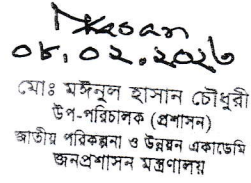 ০৮.০২.২০২৩
মোঃ মঈনুল হাসান চৌধুরী
উপ-পরিচালক (প্রশাসন)
জাতীয় পরিকল্পনা ও উন্নয়ন একাডেমি
জনপ্রশাসন মন্ত্রণালয়